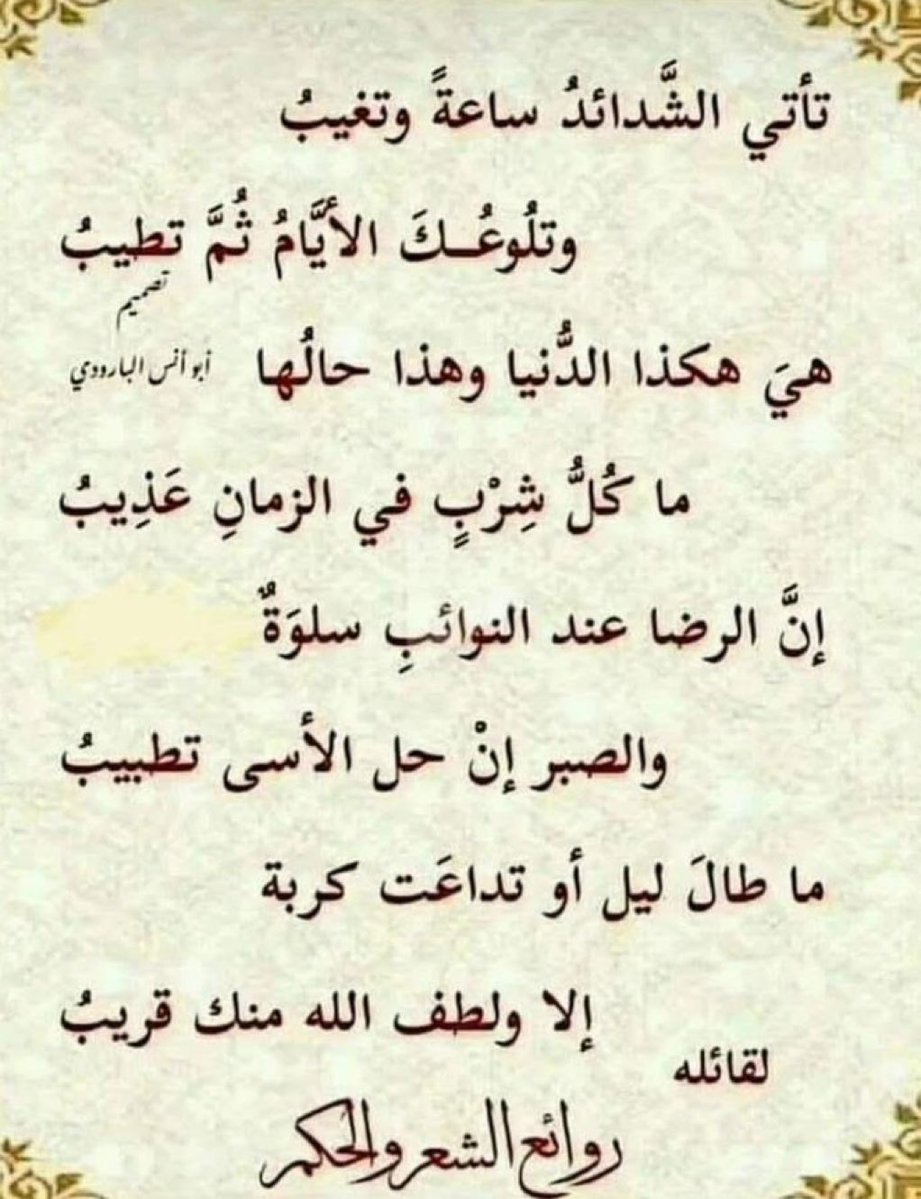 تأتي الشَّدائدُ ساعةً وتغيبُ
وتلُوعُــكَ الأيَّامُ ثُمَّ تطيبُ
تصميم
أبو أنس البارودي
هيَ هكذا الدُّنيا وهذا حالُها
ما كُلُّ شِرْبٍ في الزمانِ عَذِيبُ
إنَّ الرضا عند النوائبِ سلوَةٌ
والصبر إنْ حل الأسى تطبيبُ
ما طالَ ليل أو تداعَت كربة
إلا ولطف الله منك قريبُ
لقائله
روائع الشعر والحكم